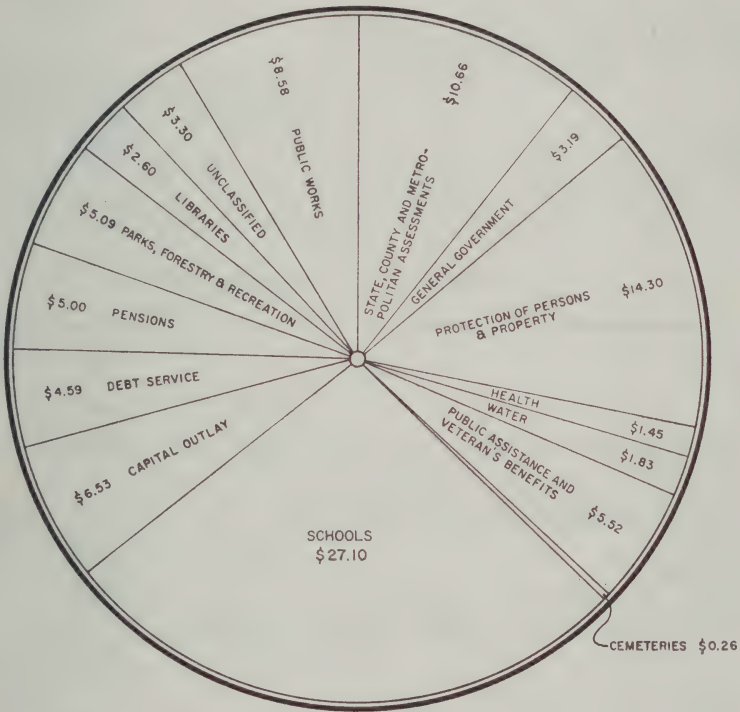 $8.58
PUBLIC WORKS
$10.66
STATE, COUNTY AND METRO-
POLITAN ASSESSMENTS
$3.19
GENERAL GOVERNMENT
$14.30
PROTECTION OF PERSONS
& PROPERTY
HEALTH
$1.45
WATER
$1.83
PUBLIC ASSISTANCE AND
VETERAN'S BENEFITS
$5.52
CEMETERIES $0.26
SCHOOLS
$27.10
$6.53 CAPITAL OUTLAY
$4.59 DEBT SERVICE
$5.00 PENSIONS
$5.09 PARKS, FORESTRY & RECREATION
$2.60 LIBRARIES
$3.30 UNCLASSIFIED